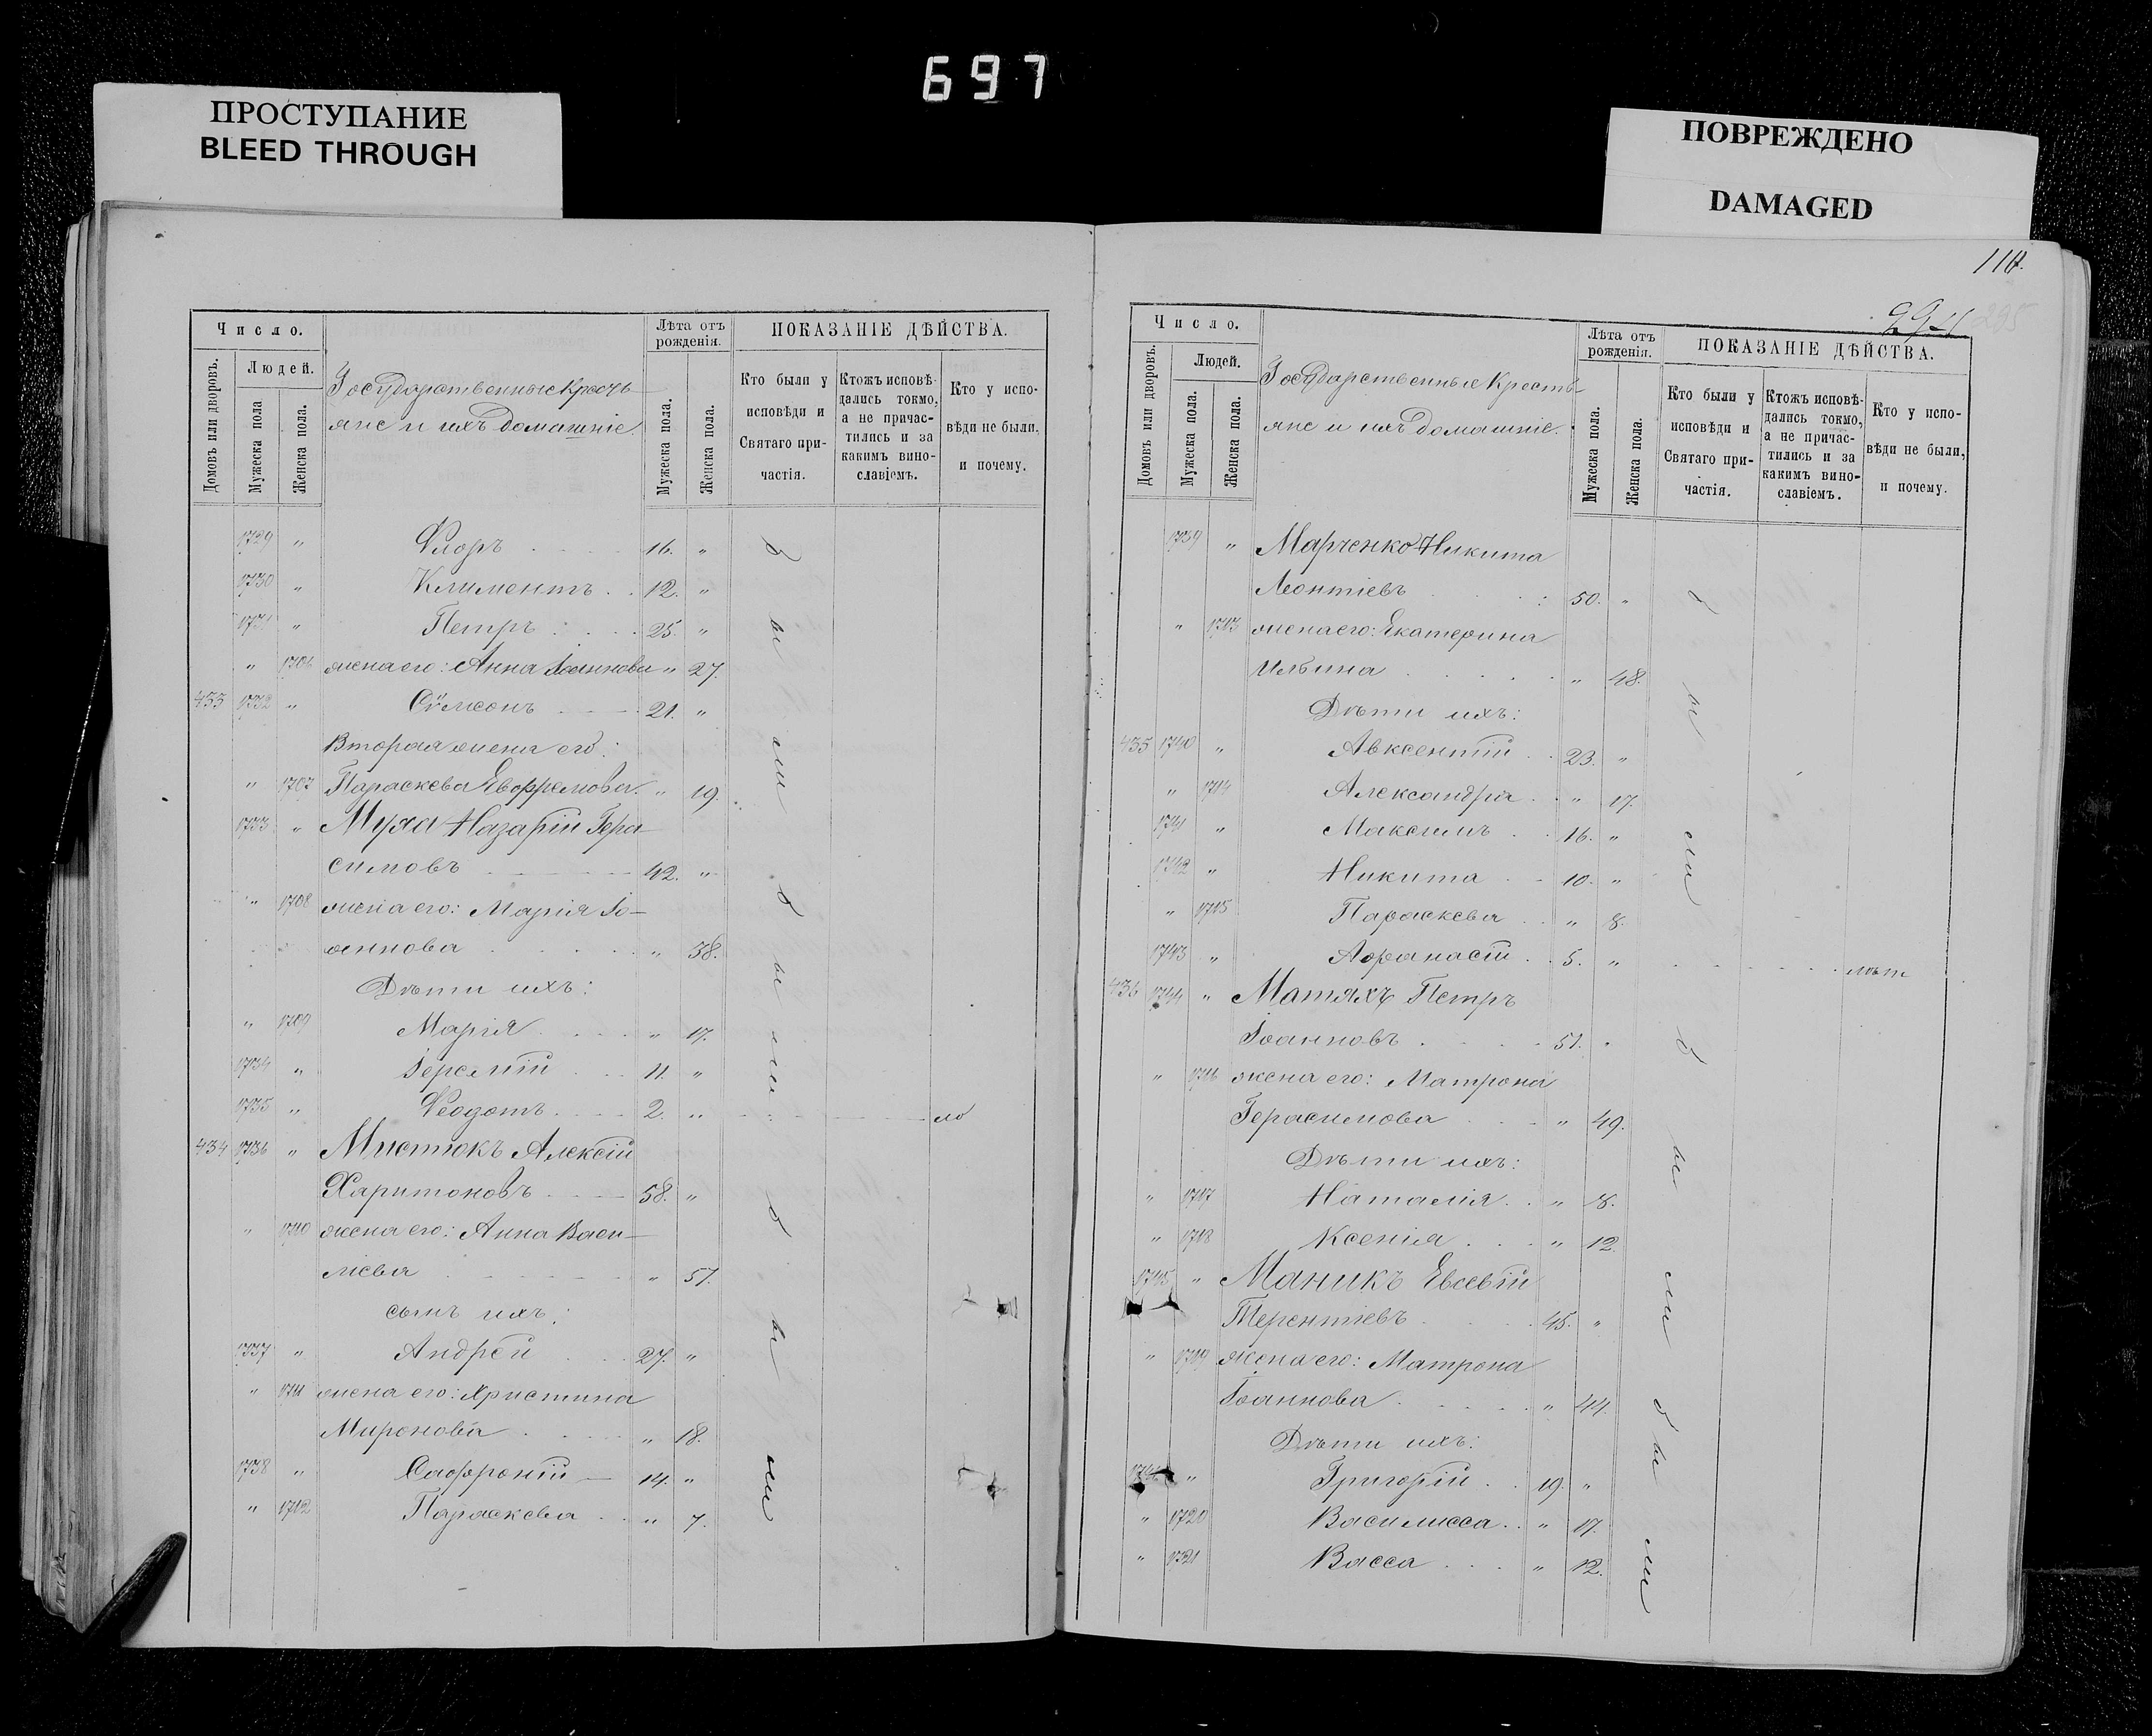 697
ПРОСТУПАНИЕ
BLEED THROUGH
ПОВРЕЖДЕНО
DAMAGED
Число.
Людей.
Домовъ или дворовъ.
Мужеска пола
Женска пола.
Государственные кресть-
яне и ихъ домашніе.
Лѣта отъ рожденія.
Мужеска пола.
Женска пола.
ПОКАЗАНІЕ ДѢЙСТВА.
Кто были у исповѣди и Святаго причастія.
Ктожъ исповѣдались токмо, а не причастились и за какимъ винославіемъ.
Кто у исповѣди не были, и почему.
1729 " Флоръ 16. "
1730 " Климентъ 12. "
1731 " Петръ 25. "
" 1706 жена его: Анна Іоаннова " 27.
433 1732 " Сѵмеонъ 21. "
Вторая жена его:
" 1707 Параскева Евфремова " 19.
1733 " Муха Назарій Гера-
симовъ 42. "
" 1708 жена его: Марія Іо-
аннова " 38.
Дѣти ихъ:
" 1709 Марія " 17.
1734 " Іеремій 11. "
1735 " Феодотъ 2. " мо
434 1736 " Мистюкъ Алексій
Харитоновъ 58. "
" 1710 жена его: Анна Васи-
ліева " 51.
сынъ ихъ:
1737 " Андрей 27. "
" 1711 жена его: Христина
Миронова " 18.
1738 " Сафроній 14. "
" 1712 Параскева " 7.
были
были
были
110.
294
295
Число.
Людей.
Домовъ или дворовъ.
Мужеска пола.
Женска пола.
Государственные кресть-
яне и ихъ домашніе.
Лѣта отъ рожденія.
Мужеска пола.
Женска пола.
ПОКАЗАНІЕ ДѢЙСТВА.
Кто были у исповѣди и Святаго причастія.
Ктожъ исповѣдались токмо, а не причастились и за какимъ винославіемъ.
Кто у исповѣди не были, и почему.
1739 " Марченко Никита
Леонтіевъ 50. "
" 1713 жена его: Екатерина
Ильина " 48.
Дѣти ихъ:
435 1740 " Авксентій 23. "
" 1714 Александра " 17.
1741 " Максимъ 16. "
1742 " Никита 10. "
" 1715 Параскева " 8.
1743 " Афанасій 5. "
436 1744 " Матяхъ Петръ
Іоанновъ 51. "
" 1716 жена его: Матрона
Герасимова " 49.
Дѣти ихъ:
" 1717 Наталія " 18.
" 1718 Ксенія " 12.
1745 " Маникъ Евсевій
Терентіевъ 45. "
" 1719 жена его: Матрона
Іоаннова " 44.
Дѣти ихъ:
1746 " Григорій 19. "
" 1720 Василисса " 17.
" 1721 Васса " 12.
были
были
были